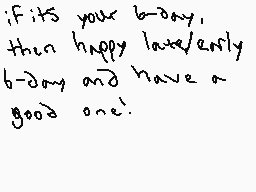 if its your b-day,
then happy late/early
b-day and have a
good one!